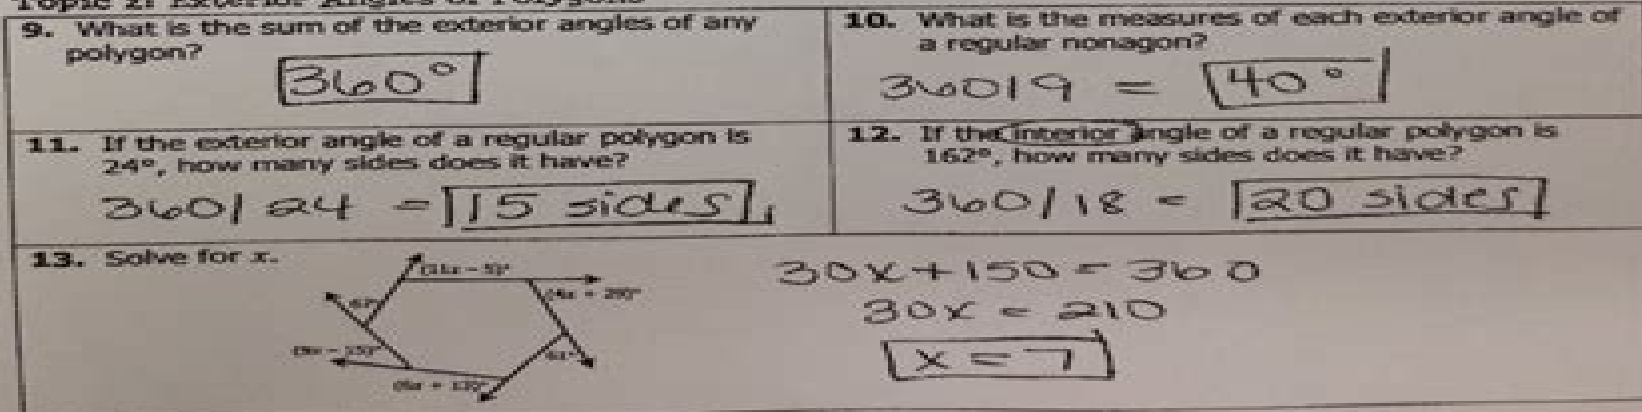 Topic 2: Exterior Angles of Polygons
9. What is the sum of the exterior angles of any
polygon?
360°
10. What is the measures of each exterior angle of
a regular nonagon?
360/9 = 40°
11. If the exterior angle of a regular polygon is
24°, how many sides does it have?
360/24 = 15 sides
12. If the interior angle of a regular polygon is
162°, how many sides does it have?
360/18 = 20 sides
13. Solve for x.
(11x - 5)°
61°
30x + 150 = 360
30x = 210
x = 7